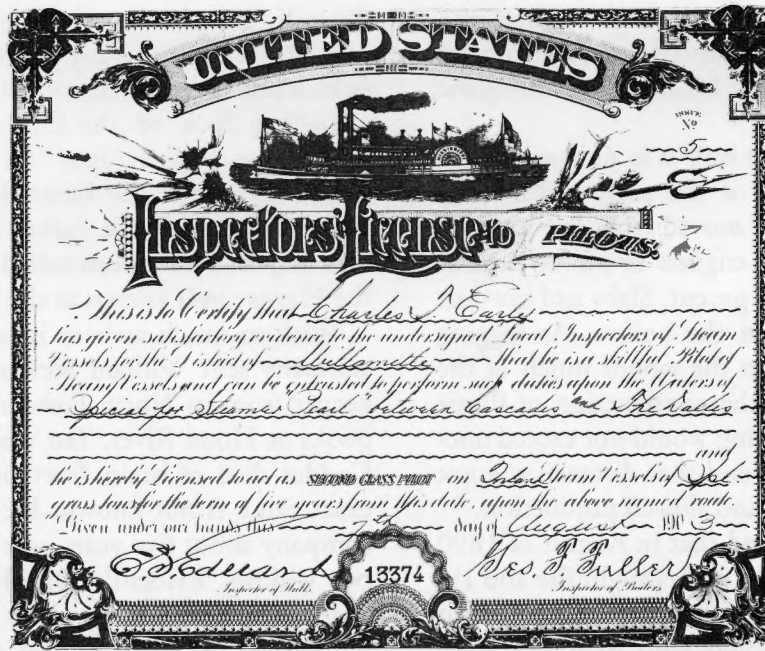 UNITED STATES
ISSUE
No
5
Inspectors' License to PILOTS.
This is to Certify that Charles J. Early
has given satisfactory evidence to the undersigned Local Inspectors of Steam
Vessels for the District of Willamette that he is a skillful Pilot of
Steam Vessels and can be entrusted to perform such duties upon the Waters of
Special for Steamer "Pearl" between Cascades and The Dalles
and
he is hereby Licensed to act as SECOND CLASS PILOT on Inland Steam Vessels of
gross tons for the term of five years from this date, upon the above named route.
Given under our hands this 7th day of August 1903
E S Edwards Geo. F. Fuller
13374
Inspector of Hulls. Inspector of Boilers.